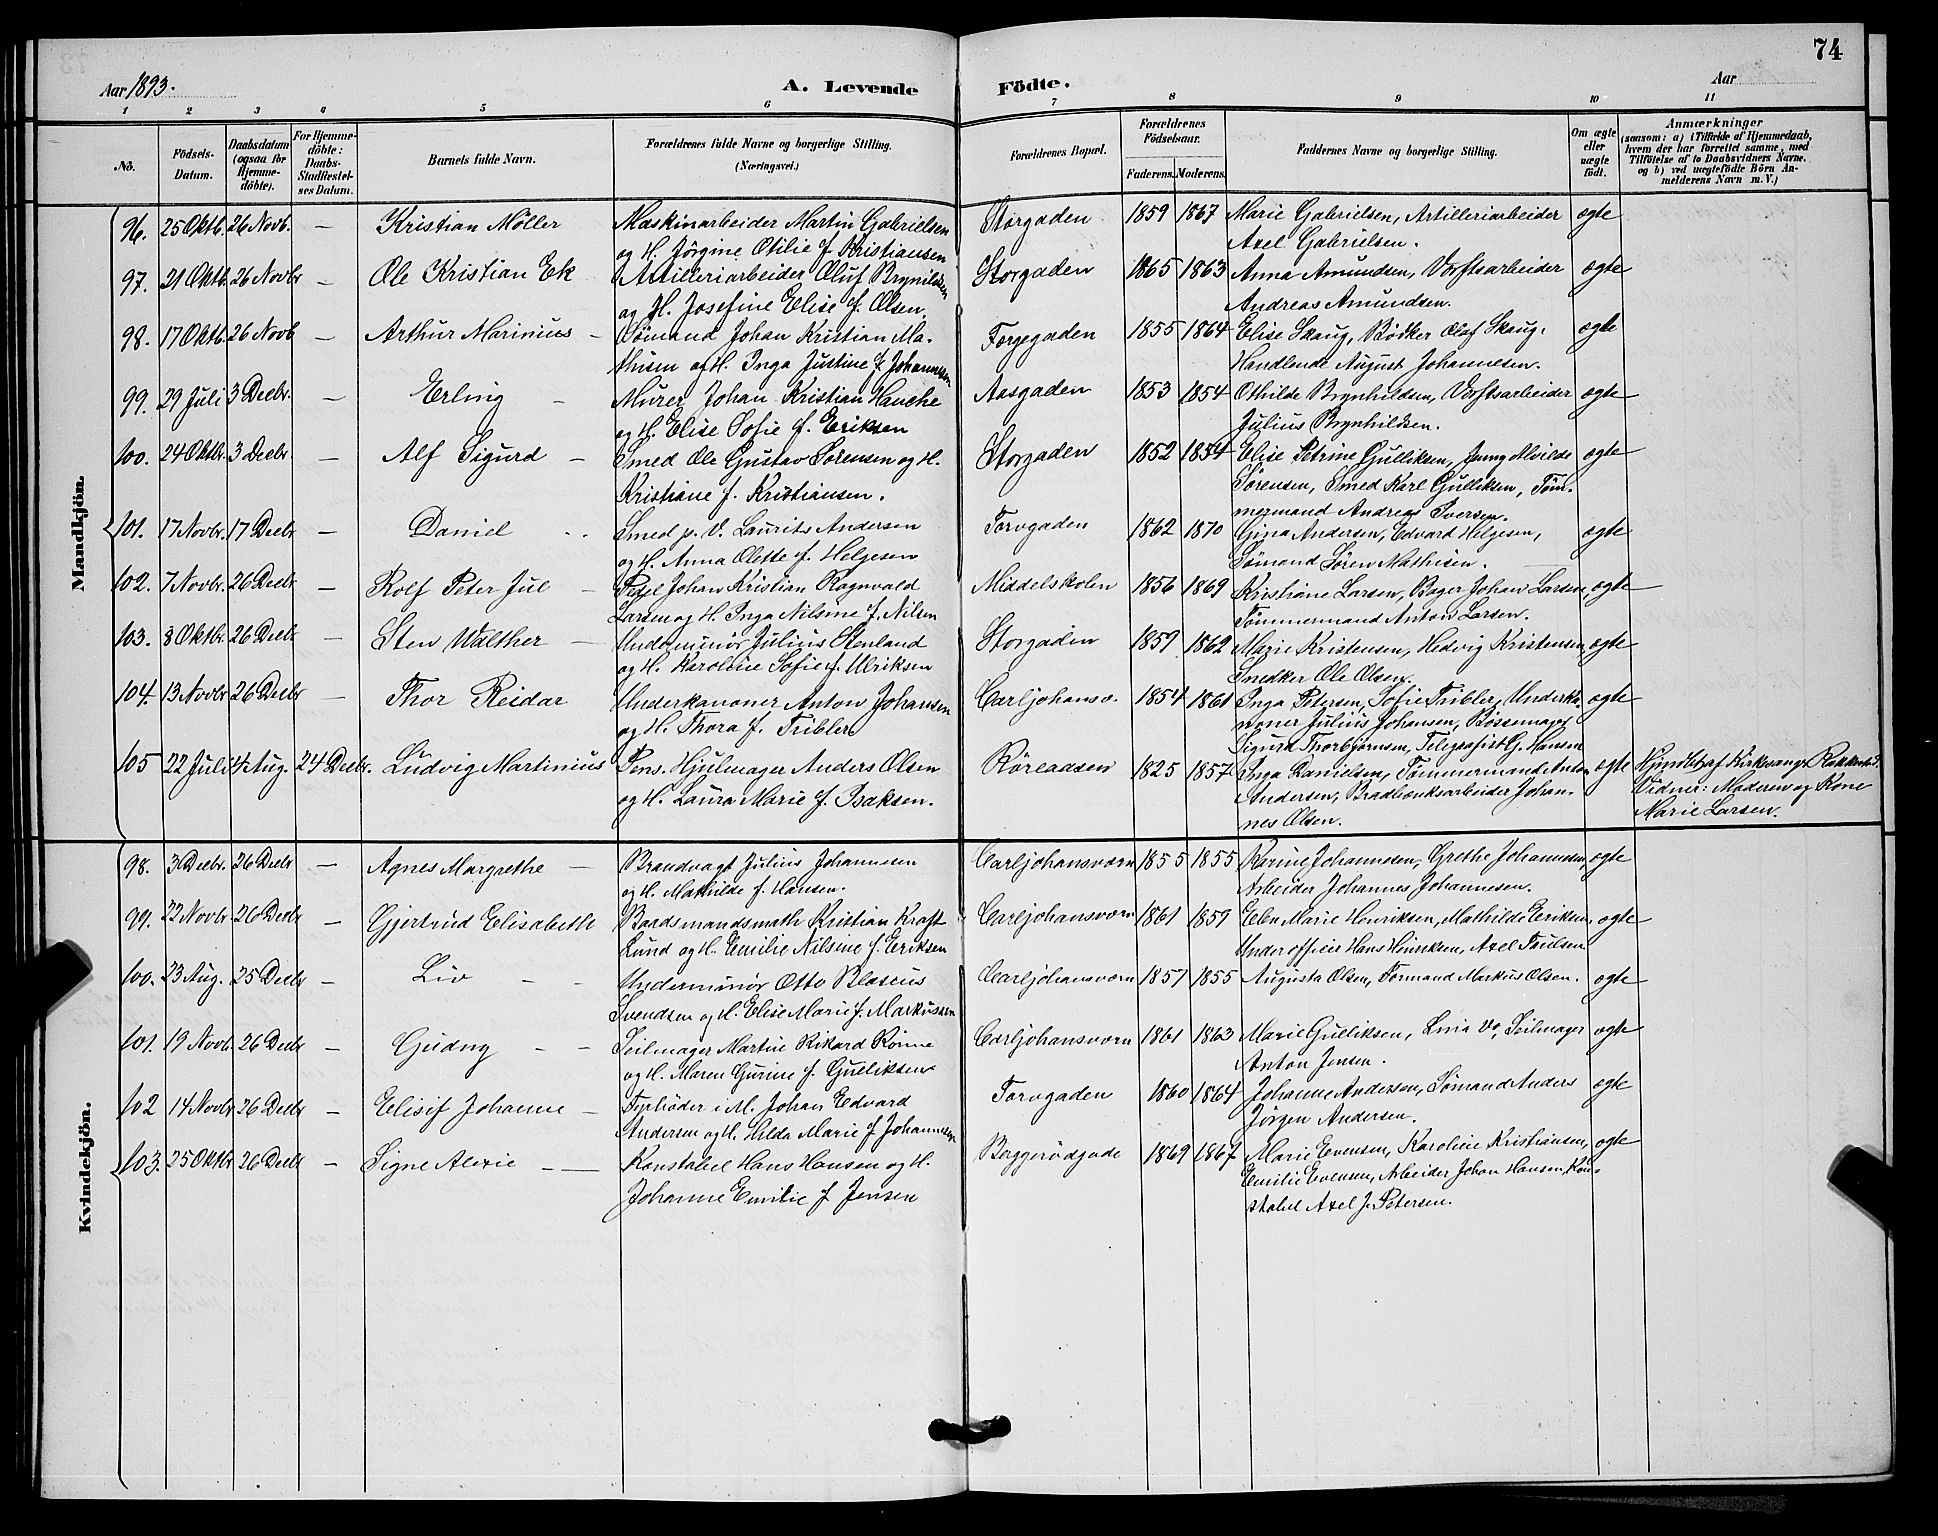 74
Aar 1893.
A. Levende Födte.
Aar
1 2 3 4 5 6 7 8 9 10 11
No.
Födsels-Datum.
Daabsdatum (ogsaa for Hjemme-döbte).
For Hjemme-döbte: Daabs-Stadfæstel-ses Datum.
Barnets fulde Navn.
Forældrenes fulde Navne og borgerlige Stilling. (Næringsvei.)
Forældrenes Bopæl.
Forældrenes Födselsaar.
Faderens. Moderens.
Faddernes Navne og borgerlige Stilling.
Om ægte eller uægte født.
Anmærkninger
(saasom: a) i Tilfælde af Hjemmedaab, hvem der har forrettet samme, med Tilföielse af to Daabsvidners Navne. og b) ved uægtefödte Börn An-melderens Navn m. V.)
Mandkjön.
96. 25 Oktb. 26 Novb. — Kristian Møller Maskinarbeider Martin Gabrielsen Storgaden 1859 1867 Marie Gabrielsen, Artilleriarbeider ægte
og H. Jörgine Otilie f. Kristiansen Axel Gabrielsen.
97. 21 Oktb. 26 Novbr — Ole Kristian Ek Artilleriarbeider Oluf Brynildsen Storgaden 1865 1863 Anna Amundsen, Verftsarbeider ægte
og H. Josefine Elise f. Olsen. Andreas Amundsen.
98. 17 Oktb. 26 Novb — Arthur Marinius — Sømand Johan Kristian Ma- Torvgaden 1855 1864 Elise Skaug, Bödker Olaf Skaug, ægte
thisen og H. Inga Justine f. Johannesen Handlende August Johannesen.
99. 29 Juli 3 Decbr. — Erling — Murer Johan Kristian Hauche Aasgaden 1853 1854 Othilde Brynhildsen, Verftsarbeider ægte
og H. Elise Sofie f. Eriksen Julius Brynhildsen.
100. 24 Oktbr. 3 Decbr. — Alf Sigurd — Smed Ole Gustav Sørensen og H. Storgaden 1852 1854 Elise Petrine Gulliksen, Jenny Alvilde ægte
Kristiane f. Kristiansen. Sørensen, Smed Karl Gulliksen, Töm-
mermand Andreas Iversen.
101. 17 Novbr. 17 Decbr — Daniel Smed p. V. Laurits Andersen Torvgaden 1862 1870 Gina Andersen, Edvard Helgesen, ægte
og H. Anna Olette f. Helgesen Sømand Søren Mathisen.
102. 7 Novbr. 26 Decbr — Rolf Peter Jul — Pedel Johan Kristian Ragnvald Middelskolen 1856 1869 Kristiane Larsen, Bager Johan Larsen, ægte
Larsen og H. Inga Nilsine f. Nilsen Tømmermand Anton Larsen.
103. 8 Oktbr. 26 Decbr — Sten Walther — Underminör Julius Stenland Storgaden 1859 1862 Marie Kristensen, Hedvig Kristensen, ægte
og H. Karoline Sofie f. Ulriksen Snedker Ole Olsen.
104. 13 Novbr. 26 Decbr — Thor Reidar Underkanoner Anton Johansen Carljohansv. 1854 1861 Inga Petersen, Sofie Tribler, Underka- ægte
og H. Thora f. Tribler noner Julius Johansen, Bøssemager
Sigurd Thorbjørnsen, Telegrafist G. Hansen
105 22 Juli 4 Aug. 24 Decbr. Ludvig Martinius Pens. Hjulmager Anders Olsen Röreaasen 1825 1857 Inga Danielsen, Tømmermand Anton ægte Hjmdbt. af Kirkesang.
og H. Laura Marie f. Isaksen. Andersen, Bradbænksarbeider Johan- Vidner: Moderen og Kone
nes Olsen. Marie Larsen.
Kvindekjön.
98. 3 Decbr. 26 Decbr — Agnes Margrethe — Brandvagt Julius Johannesen Carljohansværn 1855 1855 Karine Johannesen, Grethe Johannesen, ægte
og H. Mathilde f. Hansen. Arbeider Johannes Johannesen.
99. 22 Novbr. 26 Decbr — Gjertrud Elisabeth Baadsmandsmath Kristian Kraft Carljohansværn 1861 1859 Elen Marie Henriksen, Mathilde Eriksen, ægte
Lund og H. Emilie Nilsine f. Eriksen Underofficer Hans Henriksen, Axel Paulsen
100. 23 Aug. 25 Decbr — Liv — — Underminör Otto Blasius Carljohansværn 1857 1855 Augusta Olsen, Formand Markus Olsen. ægte
Svendsen og H. Elise Marie f. Markussen
101. 19 Novb. 26 Decbr — Gudny — — Seilmager Martin Rikard Rønne Carljohansværn 1861 1863 Marie Gulliksen, Lina Vo, Seilmager ægte
og H. Maren Gurine f. Gulliksen Anton Jensen.
102 14 Novbr 26 Decbr — Elisif Johanne — Fyrböder i M. Johan Edvard Torvgaden 1860 1864 Johanne Andersen, Sømand Anders ægte
Andersen og H. Hilda Marie f. Johannesen Jörgen Andersen.
103. 25 Oktbr 26 Decbr — Signe Alexie — — Konstabel Hans Hansen og H. Beggerödgade 1869 1867 Marie Evensen, Karoline Kristiansen, ægte
Johanne Emilie f Jensen Emilie Evensen, Arbeider Johan Hansen, Kon-
stabel Axel J. Petersen.